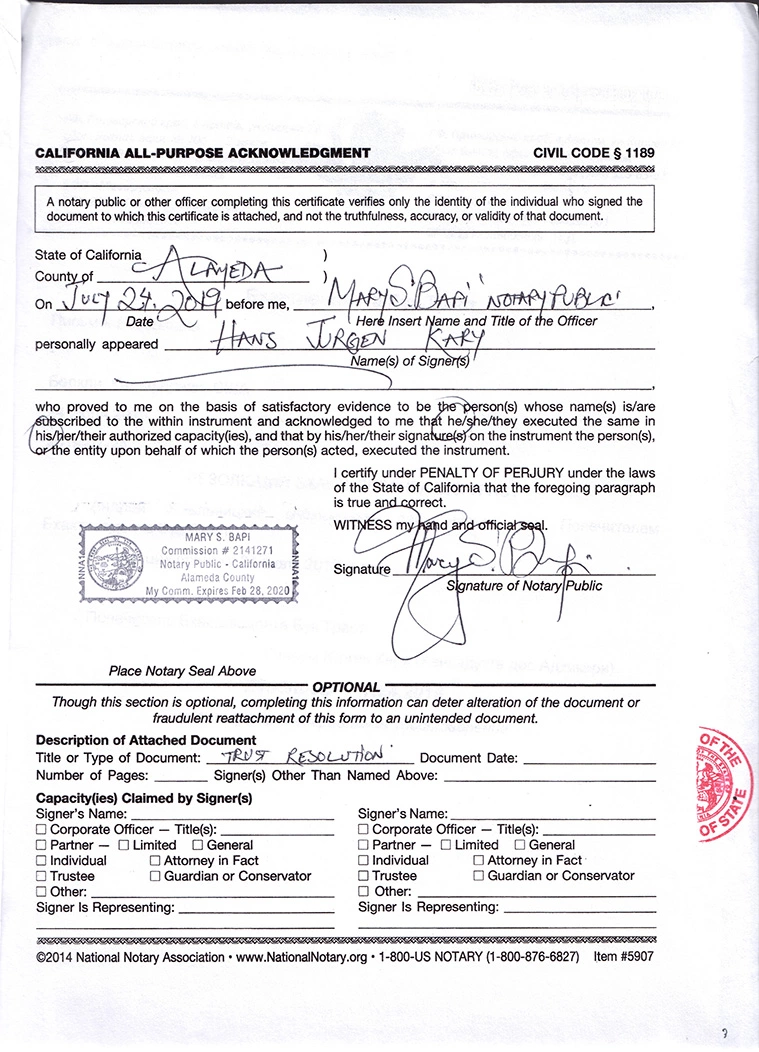 CALIFORNIA ALL-PURPOSE ACKNOWLEDGMENT CIVIL CODE § 1189
A notary public or other officer completing this certificate verifies only the identity of the individual who signed the
document to which this certificate is attached, and not the truthfulness, accuracy, or validity of that document.
State of California )
County of ALAMEDA )
On JULY 24. 2019 before me, MARY S. BAPI "NOTARY PUBLIC",
Date Here Insert Name and Title of the Officer
personally appeared HANS JURGEN KARY
Name(s) of Signer(s)
who proved to me on the basis of satisfactory evidence to be the person(s) whose name(s) is/are
subscribed to the within instrument and acknowledged to me that he/she/they executed the same in
his/her/their authorized capacity(ies), and that by his/her/their signature(s) on the instrument the person(s),
or the entity upon behalf of which the person(s) acted, executed the instrument.
I certify under PENALTY OF PERJURY under the laws
of the State of California that the foregoing paragraph
is true and correct.
WITNESS my hand and official seal.
MARY S. BAPI
Commission # 2141271
Notary Public - California
Alameda County
My Comm. Expires Feb 28, 2020
Signature Mary S. Bapi
Signature of Notary Public
Place Notary Seal Above
OPTIONAL
Though this section is optional, completing this information can deter alteration of the document or
fraudulent reattachment of this form to an unintended document.
Description of Attached Document
Title or Type of Document: TRUST RESOLUTION Document Date:
Number of Pages: Signer(s) Other Than Named Above:
OF THE
OF STATE
Capacity(ies) Claimed by Signer(s)
Signer's Name: Signer's Name:
☐ Corporate Officer — Title(s): ☐ Corporate Officer — Title(s):
☐ Partner — ☐ Limited ☐ General ☐ Partner — ☐ Limited ☐ General
☐ Individual ☐ Attorney in Fact ☐ Individual ☐ Attorney in Fact
☐ Trustee ☐ Guardian or Conservator ☐ Trustee ☐ Guardian or Conservator
☐ Other: ☐ Other:
Signer Is Representing: Signer Is Representing:
©2014 National Notary Association • www.NationalNotary.org • 1-800-US NOTARY (1-800-876-6827) Item #5907